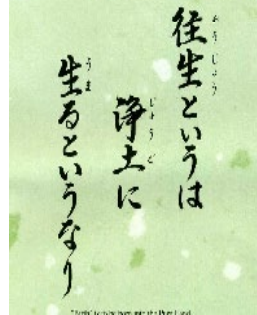 往生というは
浄土に
生るというなり